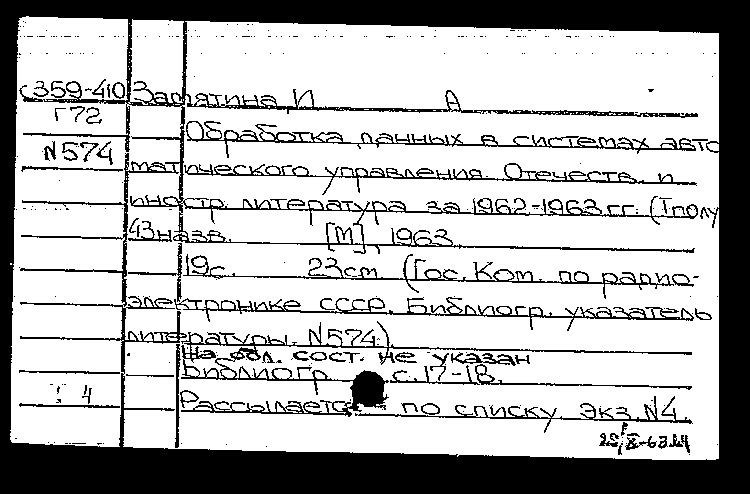 с359-410 Замятина И А
Г72
Обработка данных в системах авто
N574
матического управления. Отечеств. и
иностр. литература за 1962-1963 гг. (I полу
43 назв. [М], 1963.
19с. 23см (Гос. Ком. по радио-
электронике СССР. Библиогр. указатель
литературы. N574).
На обл. сост. не указан
Библиогр. с. 17-18.
! 4
Рассылается по списку. Экз. N4.